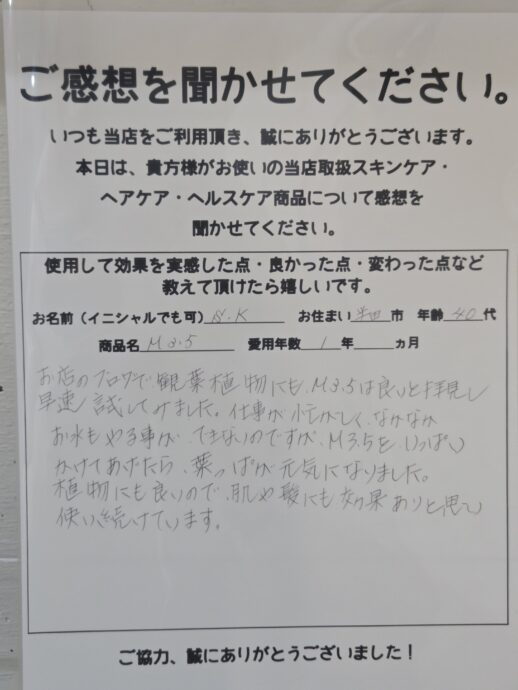 ご感想を聞かせてください。
いつも当店をご利用頂き、誠にありがとうございます。
本日は、貴方様がお使いの当店取扱スキンケア・
ヘアケア・ヘルスケア商品について感想を
聞かせてください。
使用して効果を実感した点・良かった点・変わった点など
教えて頂けたら嬉しいです。
お名前（イニシャルでも可） K お住まい 半田 市 年齢 40 代
商品名 M3.5 愛用年数 1 年 ヵ月
お店のブログで観葉植物にも、M3.5は良いと拝見し
早速試してみました。仕事が忙がしく、なかなか
お水もやる事ができないのですが、M3.5をいっぱい
かけてあげたら、葉っぱが元気になりました。
植物にも良いので、肌や髪にも効果ありと思い
使い続けています。
ご協力、誠にありがとうございました！